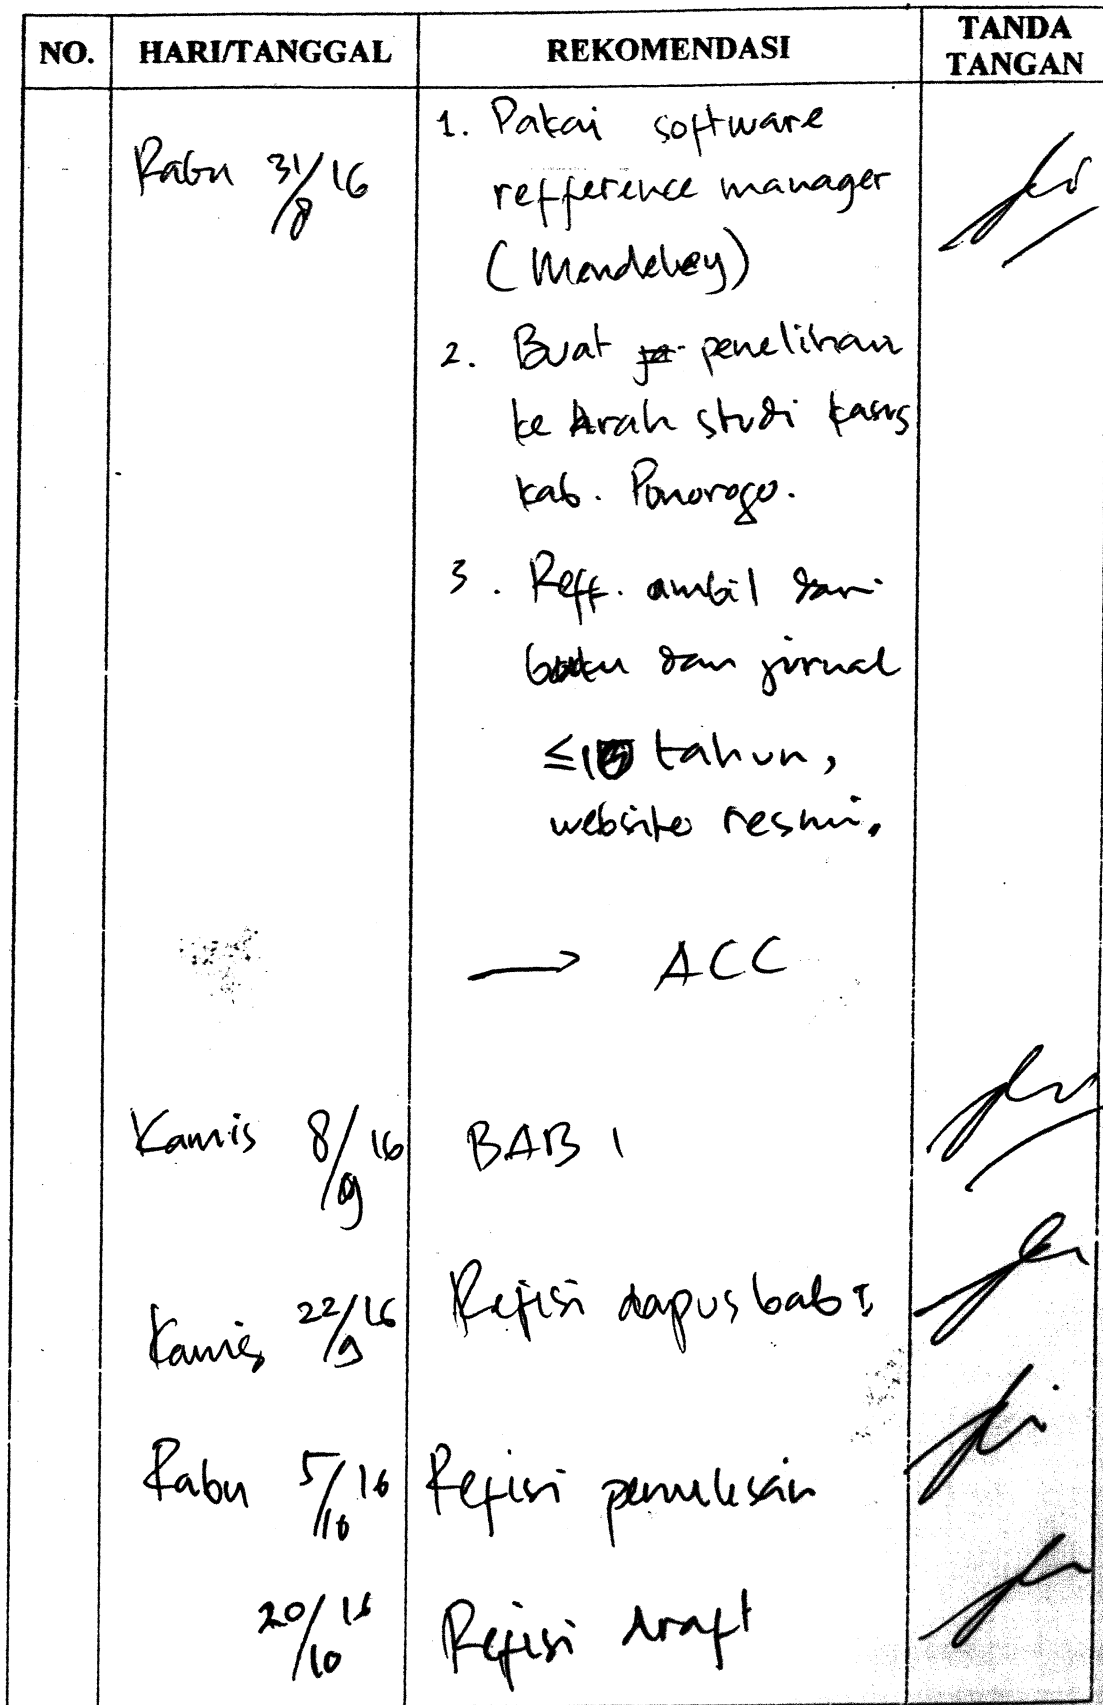 NO. HARI/TANGGAL REKOMENDASI TANDA TANGAN
Rabu 31/8/16 1. Pakai software
refference manager
(Mendeley)
2. Buat penelitian
ke Arah studi kasus
kab. Ponorogo.
3. Reff. ambil dari
buku dan jurnal
≤ tahun,
website resmi.
→ ACC
Kamis 8/9/16 BAB 1
Kamis 22/9/16 Refisi dapus bab I
Rabu 5/10/16 Refisi penulisan
20/10/16 Refisi draft